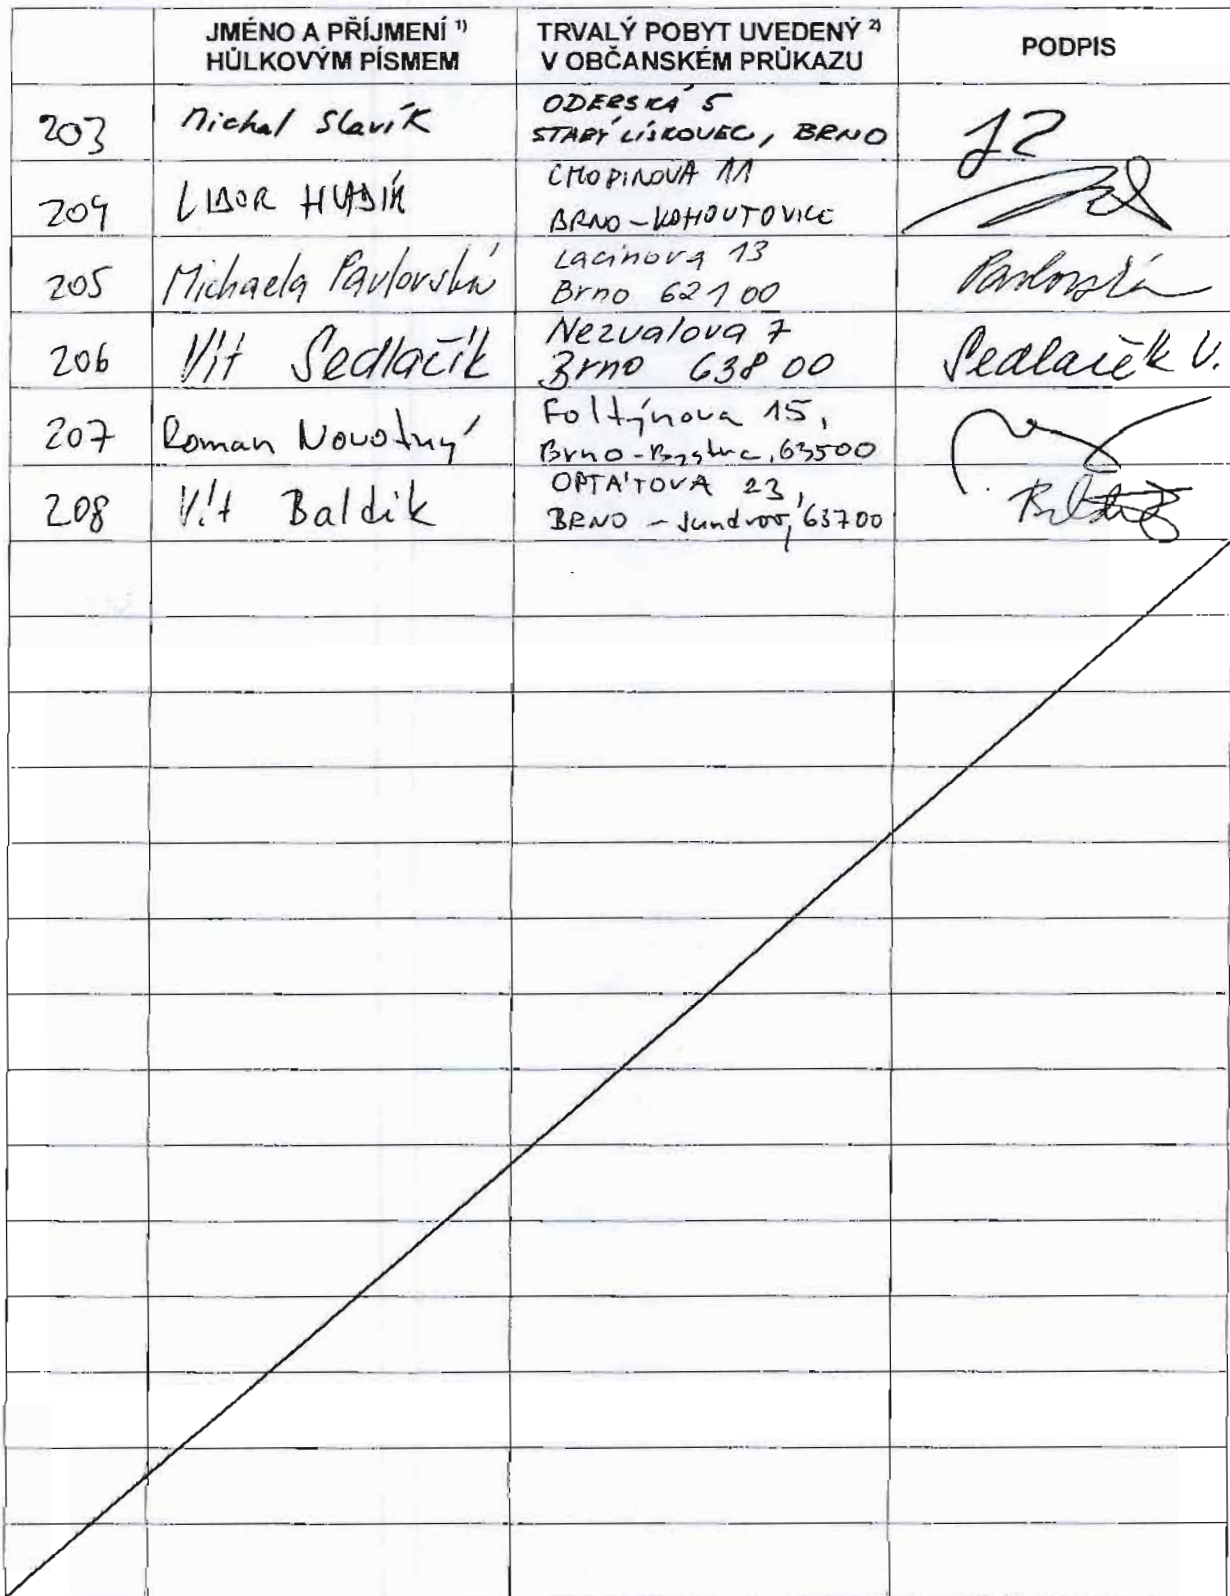 JMÉNO A PŘÍJMENÍ 1)
HŮLKOVÝM PÍSMEM
TRVALÝ POBYT UVEDENÝ 2)
V OBČANSKÉM PRŮKAZU
PODPIS
203
Michal Slavík
ODERSKÁ 5
STARÝ LÍSKOVEC, BRNO
204
LIBOR HLADÍK
CHOPINOVA 11
BRNO - KOHOUTOVICE
205
Michaela Pavlovská
Lacinova 13
Brno 621 00
Pavlovská
206
Vít Sedlačík
Nezvalova 7
Brno 638 00
Sedlačík V.
207
Roman Novotný
Foltýnova 15,
Brno-Bystrc, 63500
208
Vít Baldík
OPTÁTOVA 23,
BRNO - Jundrov, 63700